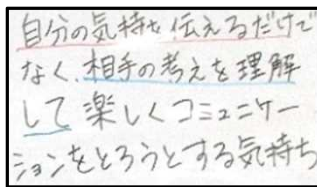 自分の気持を伝えるだけで
なく、相手の考えを理解
して楽しくコミュニケー
ションをとろうとする気持ち